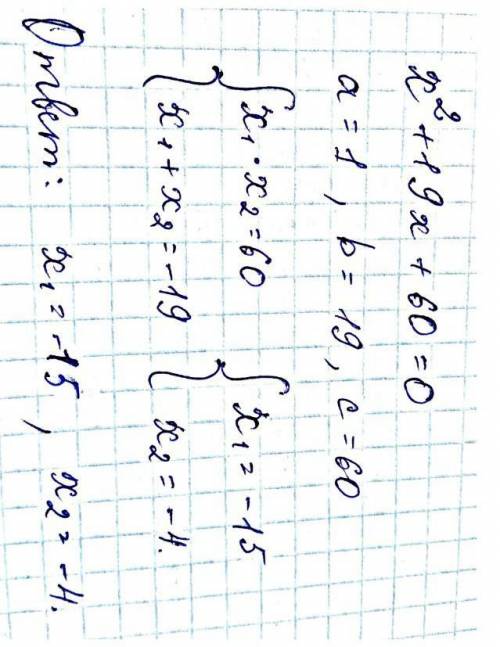 x² + 19x + 60 = 0
a = 1, b = 19, c = 60
{ x₁ · x₂ = 60 { x₁ = -15
{ x₁ + x₂ = -19 { x₂ = -4.
Ответ: x₁ = -15, x₂ = -4.